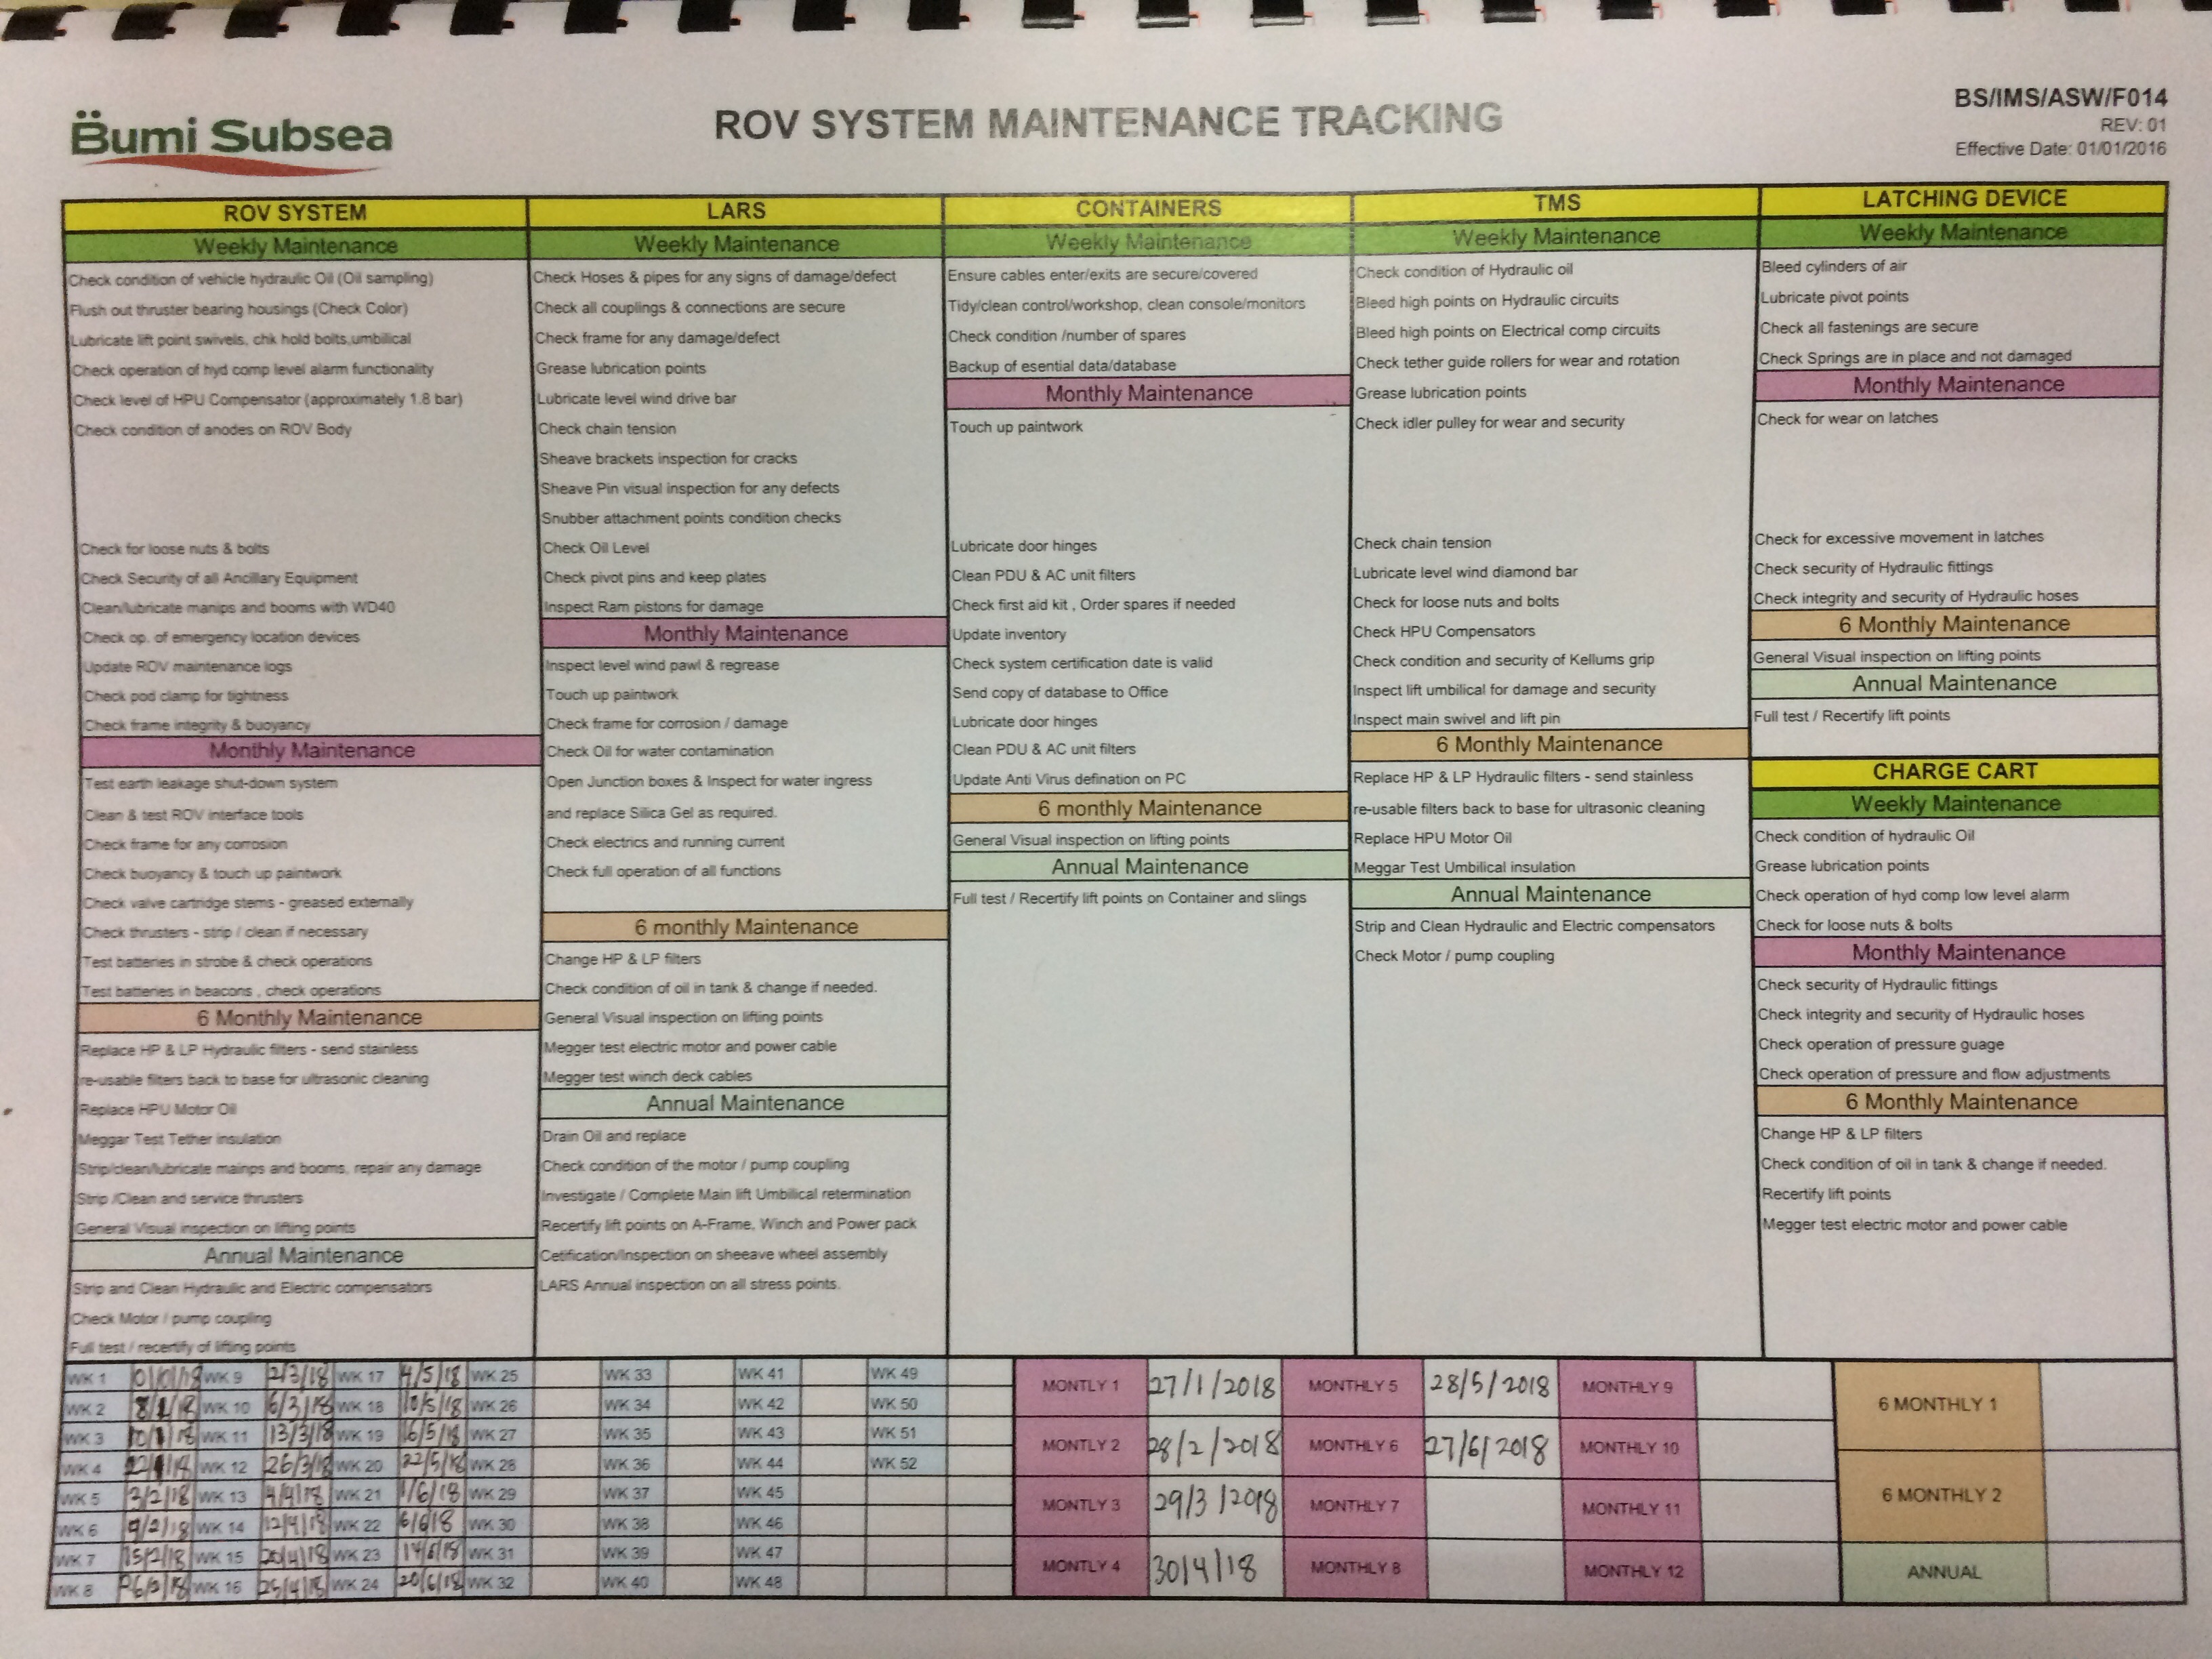 Bumi Subsea
ROV SYSTEM MAINTENANCE TRACKING
BS/IMS/ASW/F014
REV: 01
Effective Date: 01/01/2016
ROV SYSTEM
Weekly Maintenance
Check condition of vehicle hydraulic Oil (Oil sampling)
Flush out thruster bearing housings (Check Color)
Lubricate lift point swivels, chk hold bolts,umbilical
Check operation of hyd comp level alarm functionality
Check level of HPU Compensator (approximately 1.8 bar)
Check condition of anodes on ROV Body
Check for loose nuts & bolts
Check Security of all Ancillary Equipment
Clean/lubricate manips and booms with WD40
Check op. of emergency location devices
Update ROV maintenance logs
Check pod clamp for tightness
Check frame integrity & buoyancy
Monthly Maintenance
Test earth leakage shut-down system
Clean & test ROV interface tools
Check frame for any corrosion
Check buoyancy & touch up paintwork
Check valve cartridge stems - greased externally
Check thrusters - strip / clean if necessary
Test batteries in strobe & check operations
Test batteries in beacons , check operations
6 Monthly Maintenance
Replace HP & LP Hydraulic filters - send stainless
re-usable filters back to base for ultrasonic cleaning
Replace HPU Motor Oil
Meggar Test Tether insulation
Strip/clean/lubricate mainps and booms, repair any damage
Strip /Clean and service thrusters
General Visual inspection on lifting points
Annual Maintenance
Strip and Clean Hydraulic and Electric compensators
Check Motor / pump coupling
Full test / recertify of lifting points
LARS
Weekly Maintenance
Check Hoses & pipes for any signs of damage/defect
Check all couplings & connections are secure
Check frame for any damage/defect
Grease lubrication points
Lubricate level wind drive bar
Check chain tension
Sheave brackets inspection for cracks
Sheave Pin visual inspection for any defects
Snubber attachment points condition checks
Check Oil Level
Check pivot pins and keep plates
Inspect Ram pistons for damage
Monthly Maintenance
Inspect level wind pawl & regrease
Touch up paintwork
Check frame for corrosion / damage
Check Oil for water contamination
Open Junction boxes & Inspect for water ingress
and replace Silica Gel as required.
Check electrics and running current
Check full operation of all functions
6 monthly Maintenance
Change HP & LP filters
Check condition of oil in tank & change if needed.
General Visual inspection on lifting points
Megger test electric motor and power cable
Megger test winch deck cables
Annual Maintenance
Drain Oil and replace
Check condition of the motor / pump coupling
Investigate / Complete Main lift Umbilical retermination
Recertify lift points on A-Frame, Winch and Power pack
Cetification/Inspection on sheeave wheel assembly
LARS Annual inspection on all stress points.
CONTAINERS
Weekly Maintenance
Ensure cables enter/exits are secure/covered
Tidy/clean control/workshop, clean console/monitors
Check condition /number of spares
Backup of esential data/database
Monthly Maintenance
Touch up paintwork
Lubricate door hinges
Clean PDU & AC unit filters
Check first aid kit , Order spares if needed
Update inventory
Check system certification date is valid
Send copy of database to Office
Lubricate door hinges
Clean PDU & AC unit filters
Update Anti Virus defination on PC
6 monthly Maintenance
General Visual inspection on lifting points
Annual Maintenance
Full test / Recertify lift points on Container and slings
TMS
Weekly Maintenance
Check condition of Hydraulic oil
Bleed high points on Hydraulic circuits
Bleed high points on Electrical comp circuits
Check tether guide rollers for wear and rotation
Grease lubrication points
Check idler pulley for wear and security
Check chain tension
Lubricate level wind diamond bar
Check for loose nuts and bolts
Check HPU Compensators
Check condition and security of Kellums grip
Inspect lift umbilical for damage and security
Inspect main swivel and lift pin
6 Monthly Maintenance
Replace HP & LP Hydraulic filters - send stainless
re-usable filters back to base for ultrasonic cleaning
Replace HPU Motor Oil
Meggar Test Umbilical insulation
Annual Maintenance
Strip and Clean Hydraulic and Electric compensators
Check Motor / pump coupling
LATCHING DEVICE
Weekly Maintenance
Bleed cylinders of air
Lubricate pivot points
Check all fastenings are secure
Check Springs are in place and not damaged
Monthly Maintenance
Check for wear on latches
Check for excessive movement in latches
Check security of Hydraulic fittings
Check integrity and security of Hydraulic hoses
6 Monthly Maintenance
General Visual inspection on lifting points
Annual Maintenance
Full test / Recertify lift points
CHARGE CART
Weekly Maintenance
Check condition of hydraulic Oil
Grease lubrication points
Check operation of hyd comp low level alarm
Check for loose nuts & bolts
Monthly Maintenance
Check security of Hydraulic fittings
Check integrity and security of Hydraulic hoses
Check operation of pressure guage
Check operation of pressure and flow adjustments
6 Monthly Maintenance
Change HP & LP filters
Check condition of oil in tank & change if needed.
Recertify lift points
Megger test electric motor and power cable
WK 1 WK 9 2/3/18 WK 17 4/5/18 WK 25 WK 33 WK 41 WK 49
WK 2 WK 10 6/3/18 WK 18 10/5/18 WK 26 WK 34 WK 42 WK 50
WK 3 WK 11 13/3/18 WK 19 16/5/18 WK 27 WK 35 WK 43 WK 51
WK 4 WK 12 26/3/18 WK 20 22/5/18 WK 28 WK 36 WK 44 WK 52
WK 5 2/2/18 WK 13 4/4/18 WK 21 1/6/18 WK 29 WK 37 WK 45
WK 6 9/2/18 WK 14 12/4/18 WK 22 6/6/18 WK 30 WK 38 WK 46
WK 7 15/2/18 WK 15 20/4/18 WK 23 14/6/18 WK 31 WK 39 WK 47
WK 8 26/2/18 WK 16 25/4/18 WK 24 20/6/18 WK 32 WK 40 WK 48
MONTLY 1 27/1/2018 MONTHLY 5 28/5/2018 MONTHLY 9
MONTLY 2 28/2/2018 MONTHLY 6 27/6/2018 MONTHLY 10
MONTLY 3 29/3/2018 MONTHLY 7 MONTHLY 11
MONTLY 4 30/4/18 MONTHLY 8 MONTHLY 12
6 MONTHLY 1
6 MONTHLY 2
ANNUAL